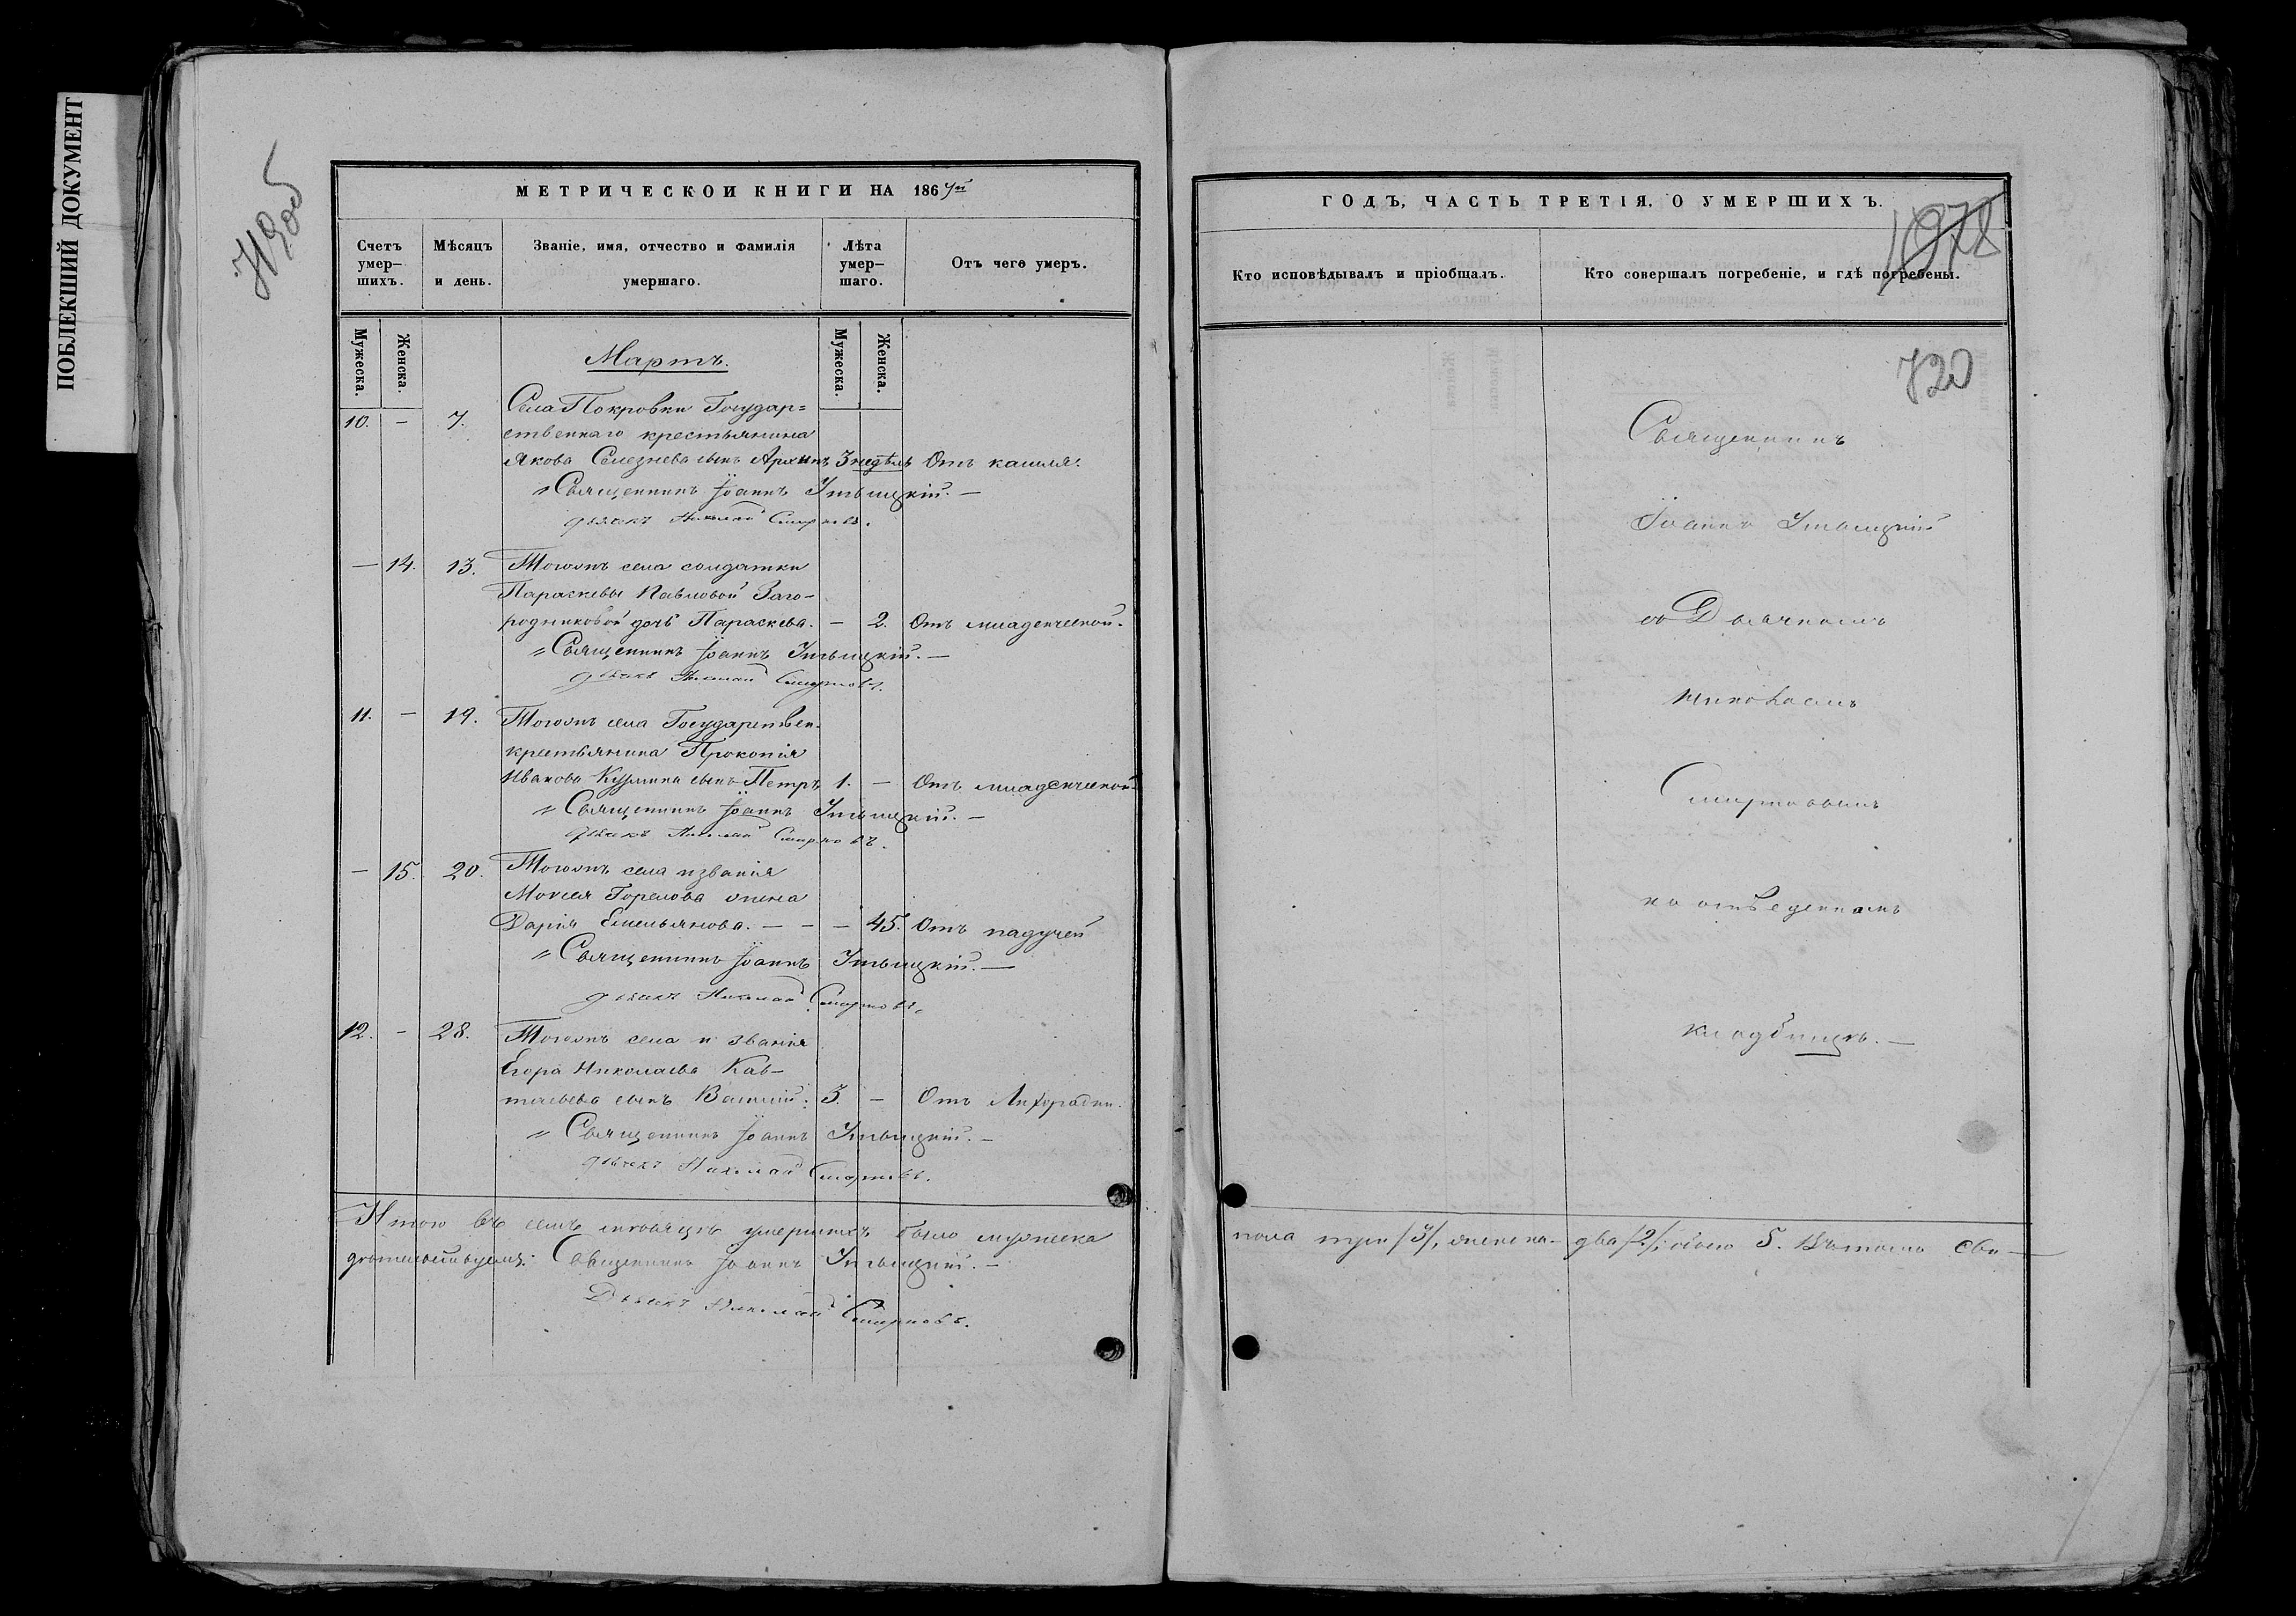 ПОБЛЕКШИЙ ДОКУМЕНТ
МЕТРИЧЕСКОЙ КНИГИ НА 1867й
Счетъ умер-шихъ.
Мѣсяцъ и день.
Званіе, имя, отчество и фамилія умершаго.
Лѣта умер-шаго.
Отъ чего умеръ.
Мужеска.
Женска.
Мужеска.
Женска.
Мартъ.
10. — 7. Села Покровки Государ=
ственнаго крестьянина
Якова Селезнева сынъ Архипъ 3 недѣль Отъ кашля.
Священникъ Іоаннъ
дьякъ Николай Смирновъ.
— 14. 13. Тогожъ села солдатки
Параскевы Павловой Заго-
родниковой дочь Параскева. — 2. Отъ младенческой.
Священникъ Іоаннъ
дьякъ Николай Смирновъ.
11. — 19. Тогожъ села Государствен.
крестьянина Прокопія
Иванова Кузмина сынъ Петръ 1. — Отъ младенческой
Священникъ Іоаннъ
дьякъ Николай Смирновъ.
— 15. 20. Тогожъ села и званія
Моисея Горелова жена
Дарія Емельянова. — — — 45. Отъ падучей
Священникъ Іоаннъ
дьякъ Николай Смирновъ.
12. — 28. Тогожъ села и званія
Егора Николаева
сынъ Василій. 3. — Отъ Лихорадки.
Священникъ Іоаннъ
дьякъ Николай Смирновъ.
Итого въ семъ мѣсяцѣ умершихъ было мужеска
дѣтельствуемъ: Священникъ Іоаннъ
Дьякъ Николай Смирновъ.
ГОДЪ, ЧАСТЬ ТРЕТІЯ, О УМЕРШИХЪ.
1072
Кто исповѣдывалъ и пріобщалъ.
Кто совершалъ погребеніе, и гдѣ погребены.
720
Священникъ
Іоаннъ
съ Дьячкомъ
Николаемъ
Смирновымъ
на отведенномъ
кладбищѣ. —
пола три /3/, женска два /2/, обоего 5. Въ томъ сви—